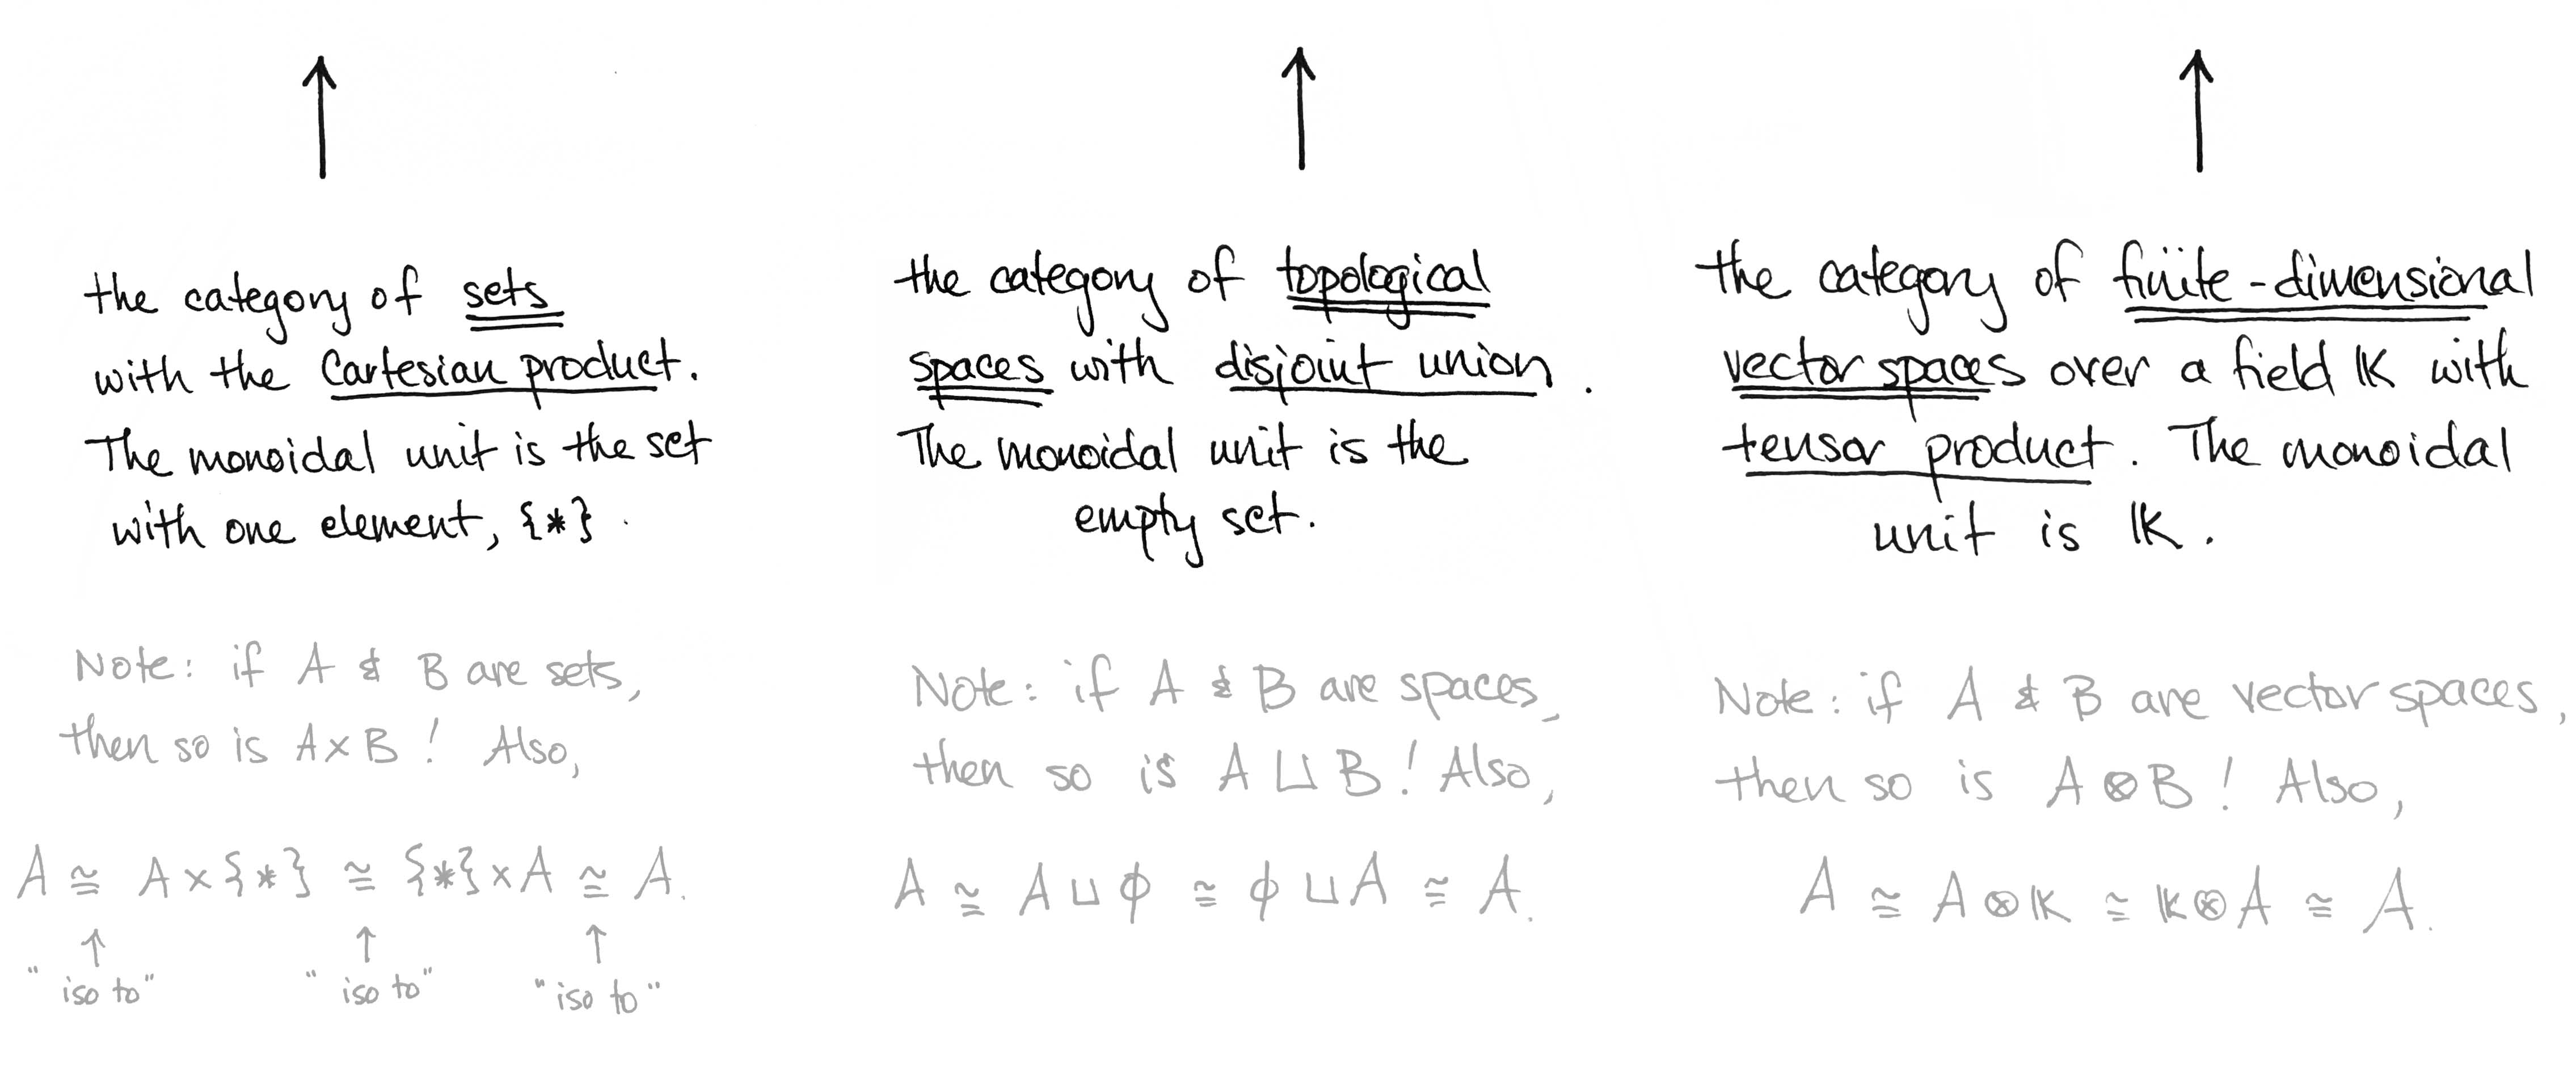 the category of sets
with the Cartesian product.
The monoidal unit is the set
with one element, {*}.
Note: if A & B are sets,
then so is A×B! Also,
A ≅ A×{*} ≅ {*}×A ≅ A.
↑ ↑ ↑
"iso to" "iso to" "iso to"
the category of topological
spaces with disjoint union.
The monoidal unit is the
empty set.
Note: if A & B are spaces,
then so is A ⊔ B! Also,
A ≅ A ⊔ ϕ ≅ ϕ ⊔ A ≅ A.
the category of finite-dimensional
vector spaces over a field 𝕜 with
tensor product. The monoidal
unit is 𝕜.
Note: if A & B are vector spaces,
then so is A ⊗ B! Also,
A ≅ A ⊗ 𝕜 ≅ 𝕜 ⊗ A ≅ A.